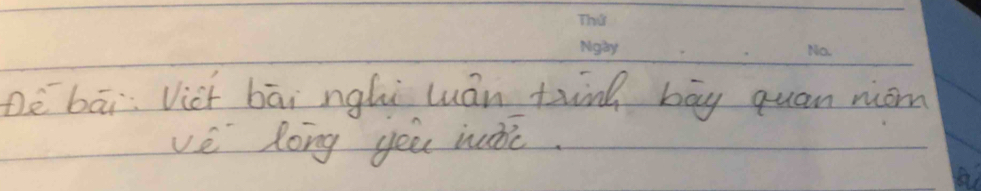 Thứ
Ngày . . No.
Đề bài: Viết bài nghị luận trình bày quan niệm
về lòng yêu nước.